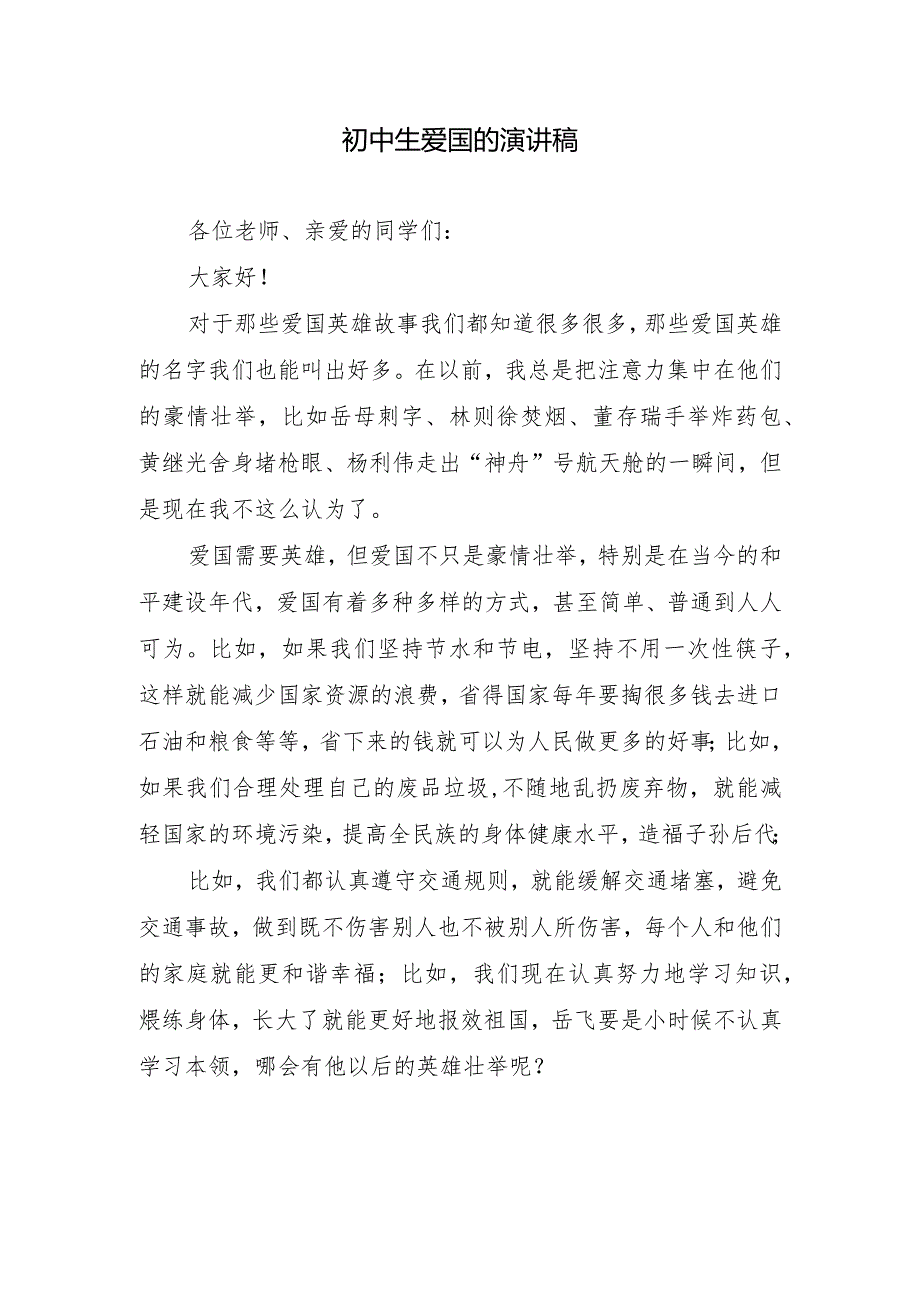 初中生爱国的演讲稿
各位老师、亲爱的同学们：
大家好！
对于那些爱国英雄故事我们都知道很多很多，那些爱国英雄
的名字我们也能叫出好多。在以前，我总是把注意力集中在他们
的豪情壮举，比如岳母刺字、林则徐焚烟、董存瑞手举炸药包、
黄继光舍身堵枪眼、杨利伟走出“神舟”号航天舱的一瞬间，但
是现在我不这么认为了。
爱国需要英雄，但爱国不只是豪情壮举，特别是在当今的和
平建设年代，爱国有着多种多样的方式，甚至简单、普通到人人
可为。比如，如果我们坚持节水和节电，坚持不用一次性筷子，
这样就能减少国家资源的浪费，省得国家每年要掏很多钱去进口
石油和粮食等等，省下来的钱就可以为人民做更多的好事；比如，
如果我们合理处理自己的废品垃圾,不随地乱扔废弃物，就能减
轻国家的环境污染，提高全民族的身体健康水平，造福子孙后代；
比如，我们都认真遵守交通规则，就能缓解交通堵塞，避免
交通事故，做到既不伤害别人也不被别人所伤害，每个人和他们
的家庭就能更和谐幸福；比如，我们现在认真努力地学习知识，
煨练身体，长大了就能更好地报效祖国，岳飞要是小时候不认真
学习本领，哪会有他以后的英雄壮举呢？